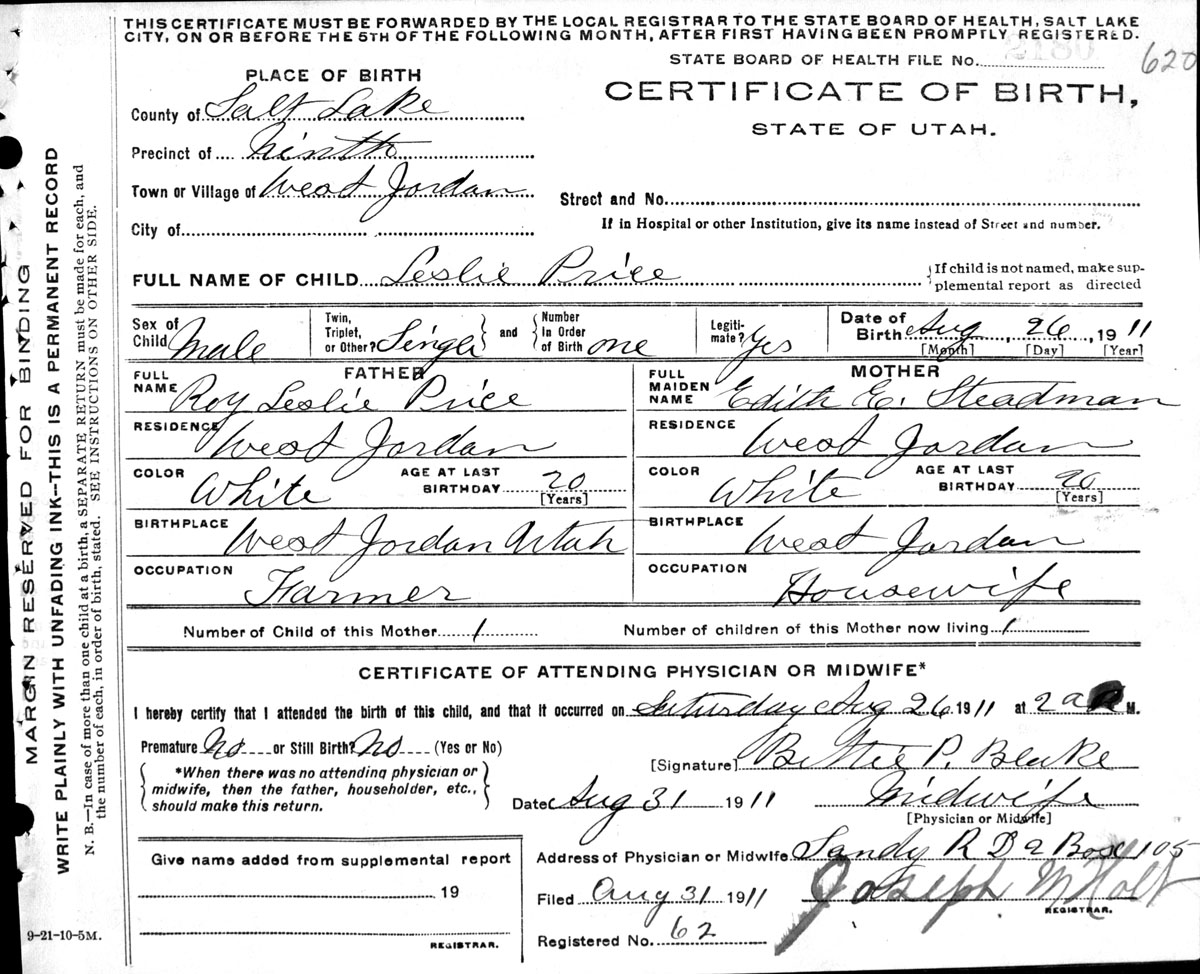 THIS CERTIFICATE MUST BE FORWARDED BY THE LOCAL REGISTRAR TO THE STATE BOARD OF HEALTH, SALT LAKE
CITY, ON OR BEFORE THE 5TH OF THE FOLLOWING MONTH, AFTER FIRST HAVING BEEN PROMPTLY REGISTERED.
STATE BOARD OF HEALTH FILE No. 620
PLACE OF BIRTH
CERTIFICATE OF BIRTH,
STATE OF UTAH.
County of Salt Lake
Precinct of Ninth
Town or Village of West Jordan
Street and No.
City of
If in Hospital or other Institution, give its name instead of Street and number.
FULL NAME OF CHILD Leslie Price
If child is not named, make sup-
plemental report as directed
Sex of Child Male
Twin, Triplet, or Other? Single and Number In Order of Birth one
Legiti-mate? Yes
Date of Birth Aug 26, 1911
[Month] [Day] [Year]
FATHER
FULL NAME Roy Leslie Price
RESIDENCE West Jordan
COLOR White AGE AT LAST BIRTHDAY 20
[Years]
BIRTHPLACE West Jordan Utah
OCCUPATION Farmer
MOTHER
FULL MAIDEN NAME Edith E. Steadman
RESIDENCE West Jordan
COLOR White AGE AT LAST BIRTHDAY 20
[Years]
BIRTHPLACE West Jordan
OCCUPATION Housewife
Number of Child of this Mother 1 Number of children of this Mother now living 1
CERTIFICATE OF ATTENDING PHYSICIAN OR MIDWIFE*
I hereby certify that I attended the birth of this child, and that it occurred on Saturday Aug 26 1911 at 2 a M.
Premature No or Still Birth? No (Yes or No)
*When there was no attending physician or
midwife, then the father, householder, etc.,
should make this return.
[Signature] Bettie P. Blake
Date Aug 31 1911 Midwife
[Physician or Midwife]
Give name added from supplemental report
19
REGISTRAR.
Address of Physician or Midwife Sandy R D 2 Box 105
Filed Aug 31 1911 Joseph M Holt
REGISTRAR.
Registered No. 62
9-21-10-5M.
MARGIN RESERVED FOR BINDING
WRITE PLAINLY WITH UNFADING INK--THIS IS A PERMANENT RECORD
N. B.—In case of more than one child at a birth, a SEPARATE RETURN must be made for each, and
the number of each, in order of birth, stated. SEE INSTRUCTIONS ON OTHER SIDE.